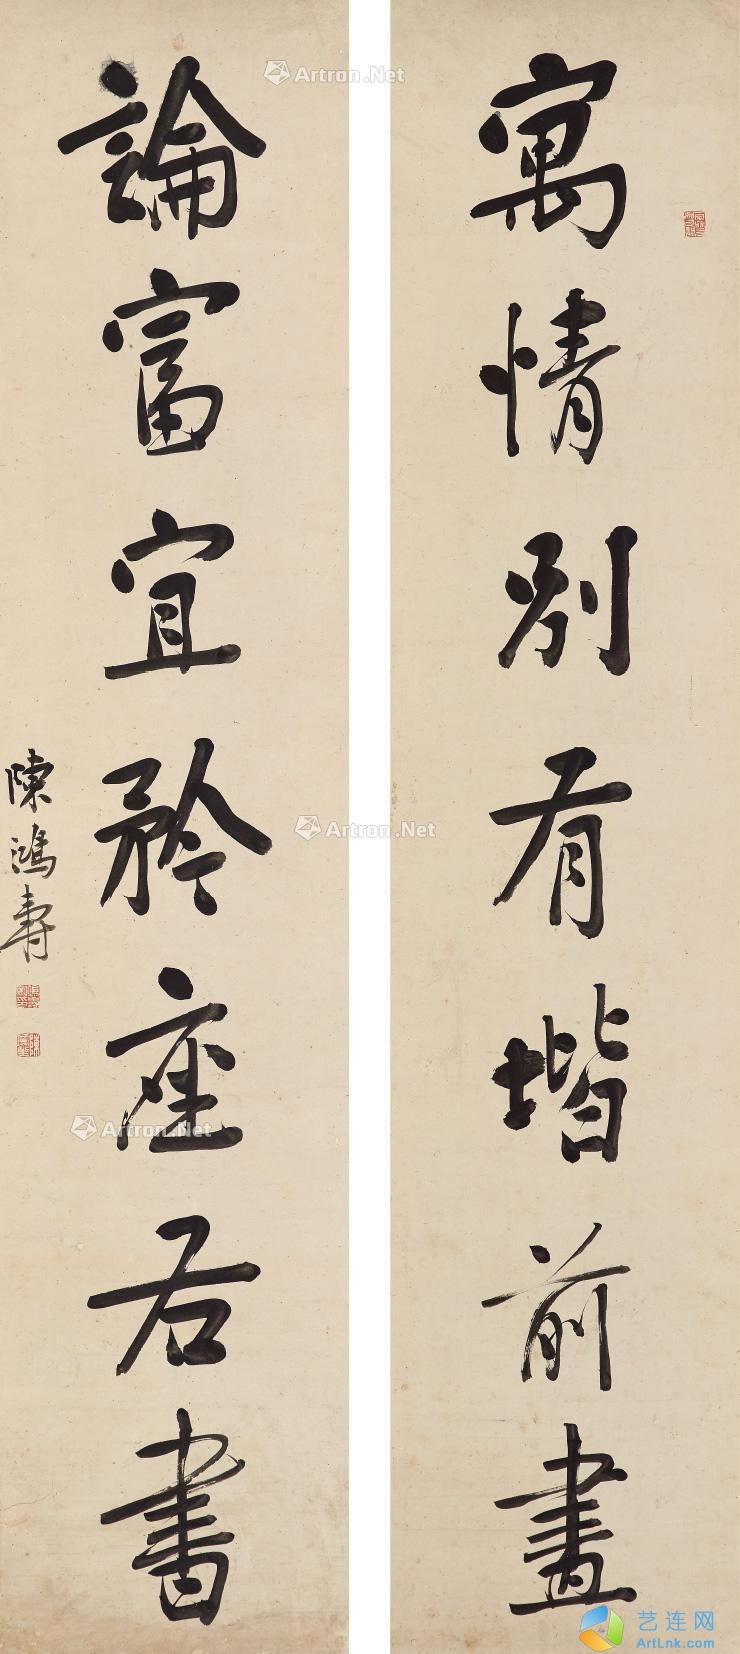 寓情別有堦前畫
論富宜矜座右書
陳鴻壽
Artron.Net
Artron.Net
Artron.Net
艺连网
ArtLnk.com